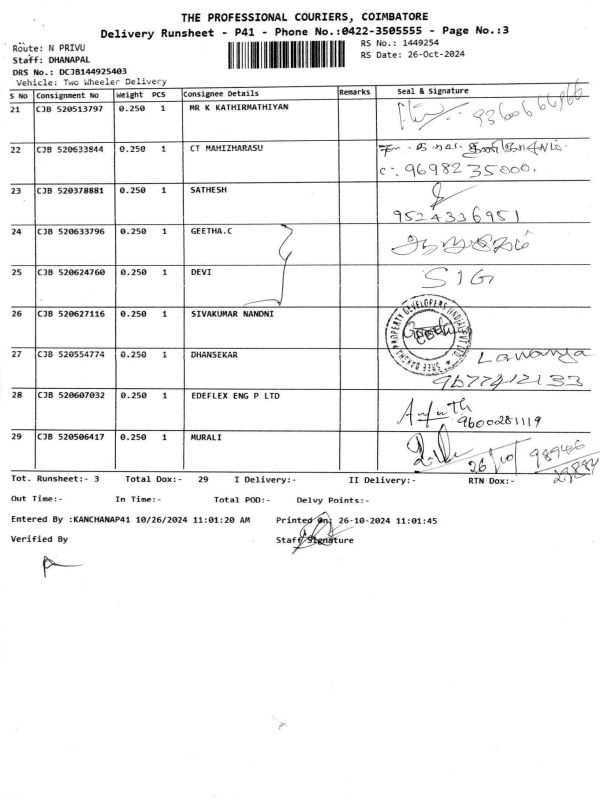 THE PROFESSIONAL COURIERS, COIMBATORE
Delivery Runsheet - P41 - Phone No.:0422-3505555 - Page No.:3
Route: N PRIVU RS No.: 1449254
Staff: DHANAPAL RS Date: 26-Oct-2024
DRS No.: DCJB144925403
Vehicle: Two Wheeler Delivery
S No Consignment No Weight PCS Consignee Details Remarks Seal & Signature
21 CJB 520513797 0.250 1 MR K KATHIRMATHIYAN
22 CJB 520633844 0.250 1 CT MAHIZHARASU
9698235000.
23 CJB 520378881 0.250 1 SATHESH
9524336951
24 CJB 520633796 0.250 1 GEETHA.C
25 CJB 520624760 0.250 1 DEVI SIG
26 CJB 520627116 0.250 1 SIVAKUMAR NANDNI
27 CJB 520554774 0.250 1 DHANSEKAR Lavanya
9677412133
28 CJB 520607032 0.250 1 EDEFLEX ENG P LTD
9600281119
29 CJB 520506417 0.250 1 MURALI 26/10
Tot. Runsheet:- 3 Total Dox:- 29 I Delivery:- II Delivery:- RTN Dox:-
Out Time:- In Time:- Total POD:- Delvy Points:-
Entered By :KANCHANAP41 10/26/2024 11:01:20 AM Printed On: 26-10-2024 11:01:45
Verified By Staff Signature